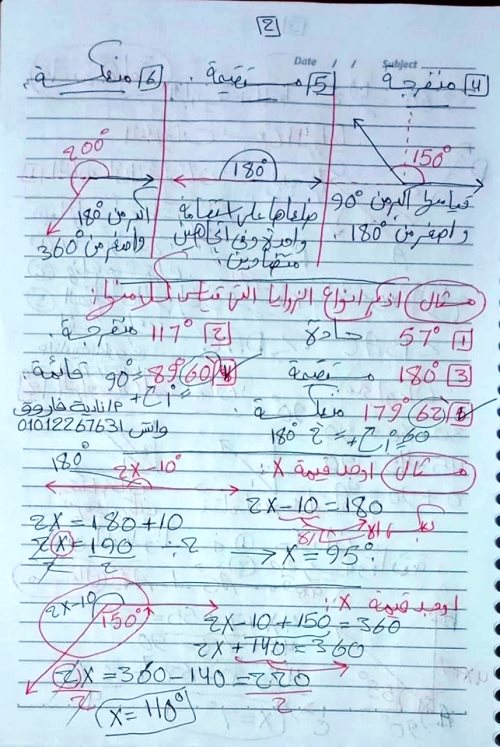 2
Date / / Subject
4 منفرجة
150°
قياسها أكبر من 90°
وأصغر من 180°.
5 مستقيمة.
180°
ضلعاها على استقامة
واحدة وفى اتجاهين
متضادين.
6 منعكسة.
200°
أكبر من 180°
وأصغر من 360°
مثال اذكر أنواع الزوايا التى قياس كلا منها:
1 57° حادة
2 117° منفرجة.
3 180° مستقيمة
4 89° 60 = 90° قائمة.
+1°
179° 62 منعكسة.
60 = 1° + 2 180°
م/نادية فاروق
واتس 01012267631
مثال أوجد قيمة X:
180°
2X-10°
2X-10=180
2X=180+10
2X=190 ÷2
2 2
→ X=95°.
أوجد قيمة X:
2X-10
150°
2X-10+150=360
2X+140=360
2X=360-140=220
2 2
X=110°